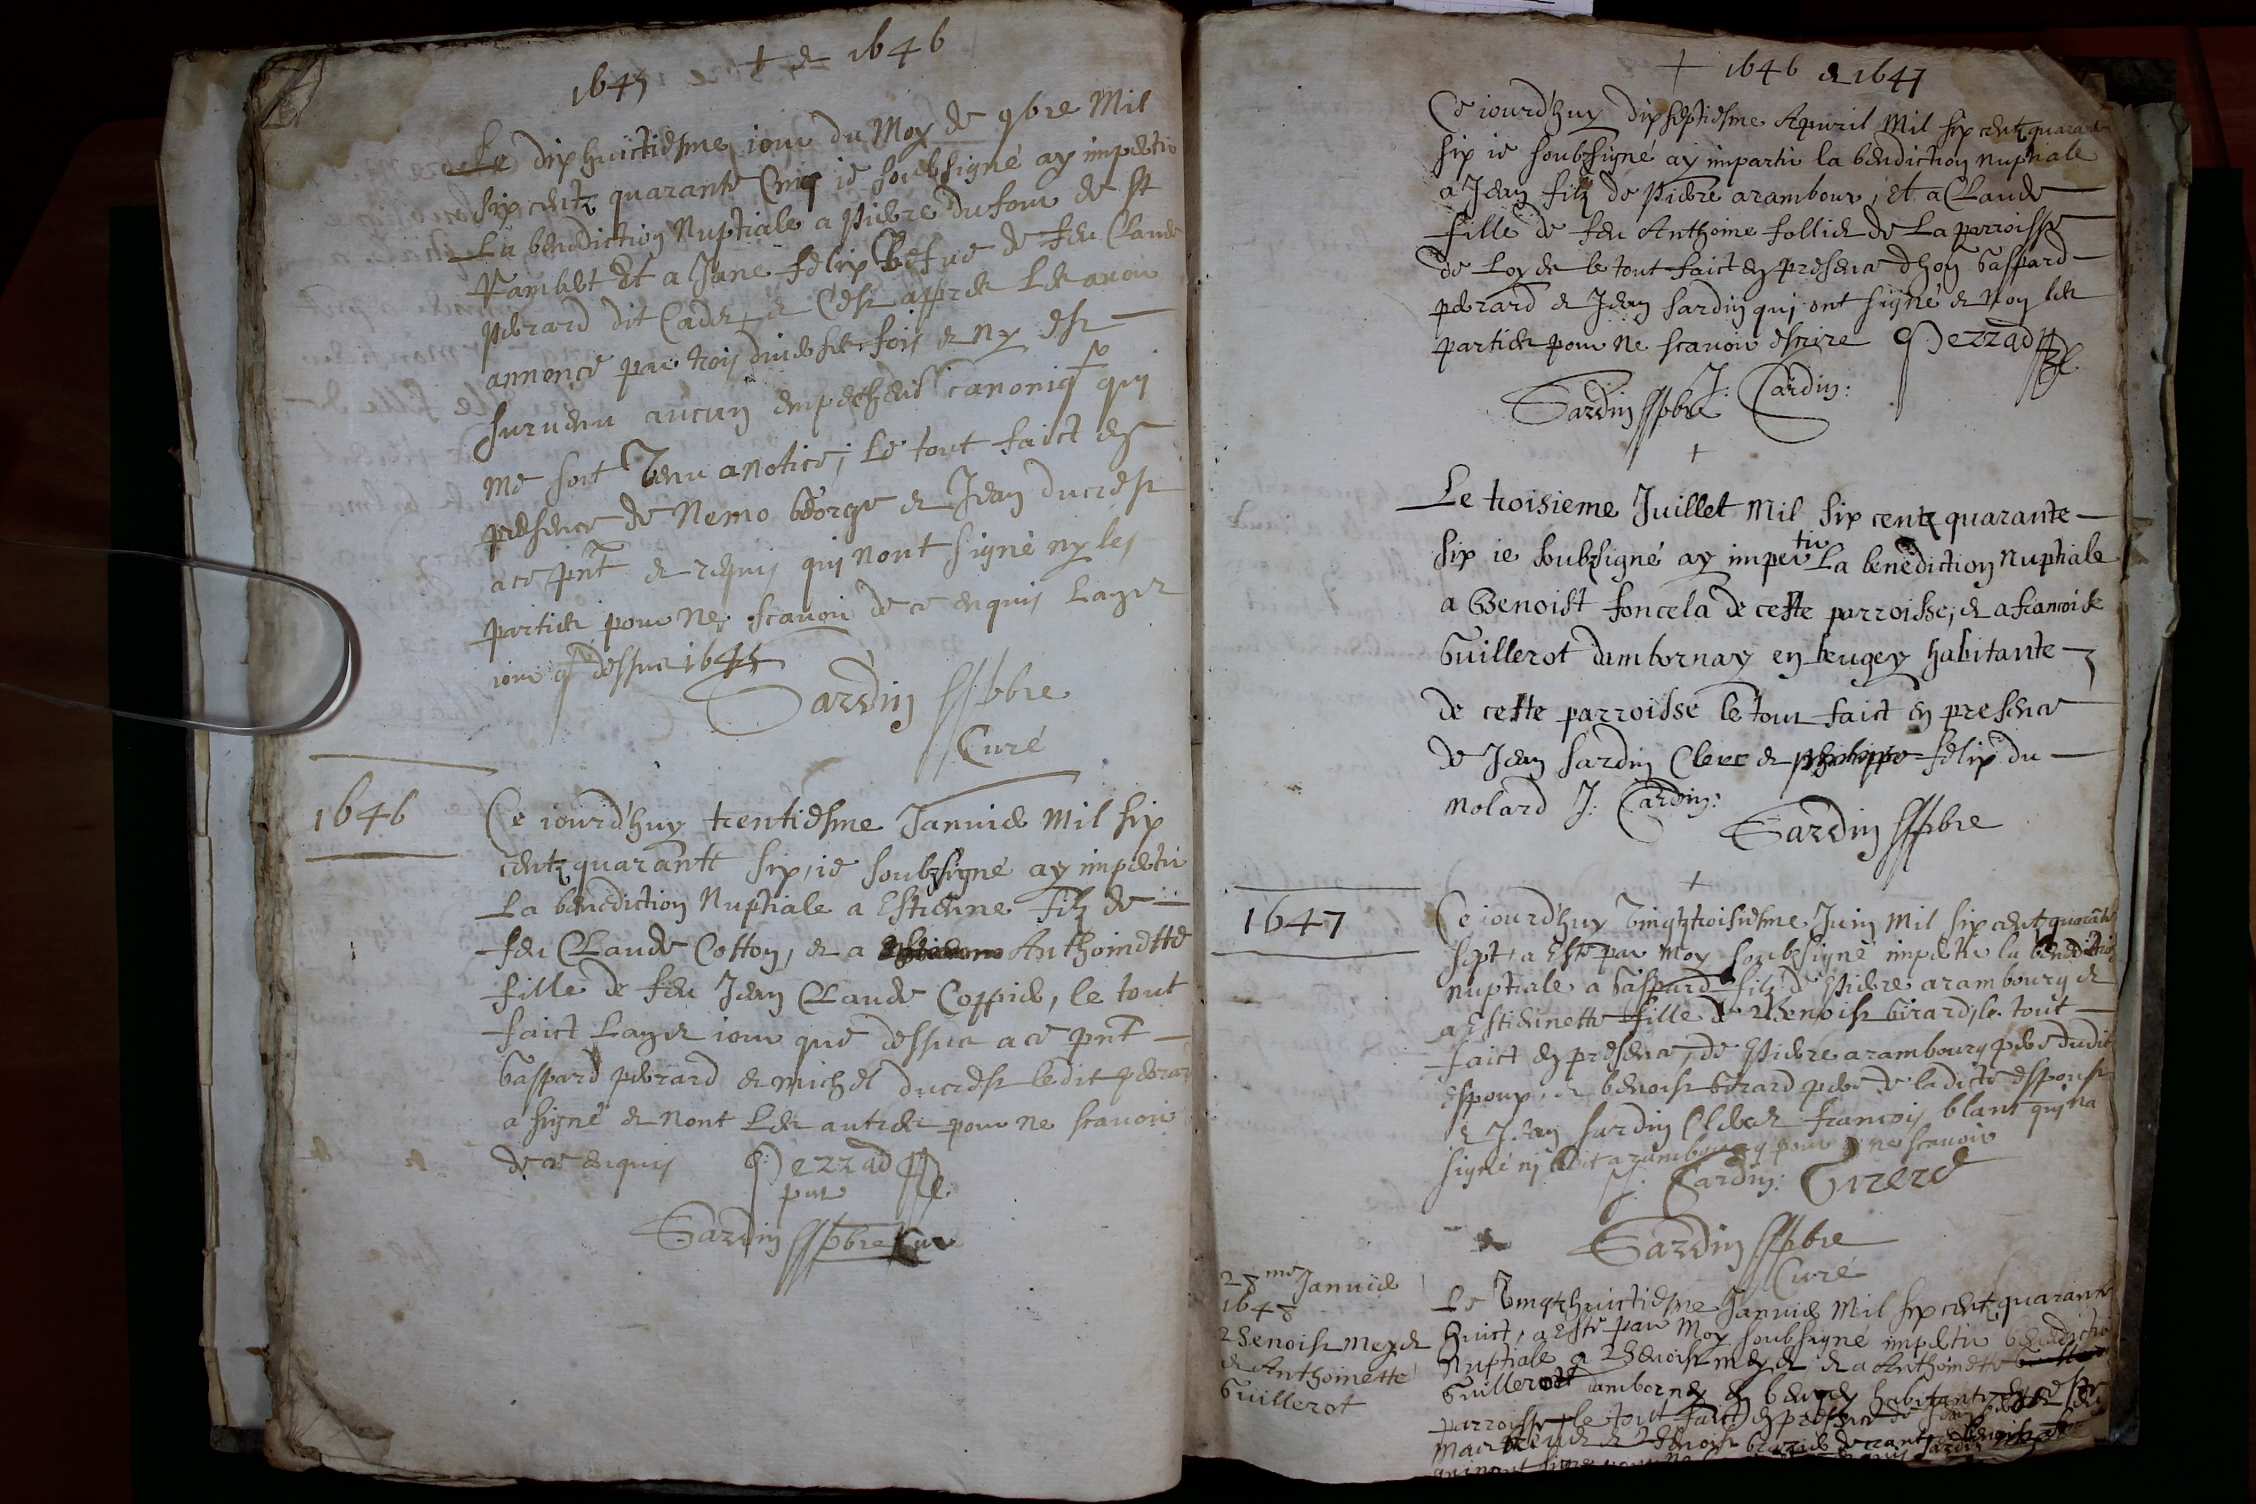 1645 + & 1646
Le dixhuictiesme jour du Moy de 9bre Mil
six centz quarante Cinq ie soubsigné ay imperti
La benediction Nuptiale a Pierre dufour de St
Et a Jane felix vefue de feu Claude
perard dit Cadet, & C'est appres Les avoir
annoncé par trois diverses fois & n'y est
survenu aucun empechemt canoniq qui
me soit venu a notice; Le tout faict en
presence de Nemo George & Jean ducrest
a ce pnt & requis qui n'ont signé ny les
parties pour ne scavoir de ce enquis L'an &
iour q dessus 1645
Sardin pbre
Curé
1646
Ce iourd'huy trentiesme Janvier Mil six
centz quarante six, ie soubzsigné ay imperti
La benediction Nuptiale a Estienne filz de
feu Claude Cotton, & a Anthoinette
fille de feu Jean Claude Coppier, le tout
faict L'an & iour que dessus a ce pnt
Gaspard perard & michel ducrest ledit perard
a signé & non Les autres pour ne scavoir
de ce enquis Perrad
pnt
Sardin pbre Cur
+ 1646 & 1647
Ce iourd'huy dixseptiesme Apvril Mil six centz quarante
six ie soubzsigné ay imparti la benediction nuptiale
a Jean filz de Pierre arambour, et a Claude
fille de feu Anthoine follier de La parroisse
de Loy & le tout faict en presence d'hon Gaspard
perard & Jean Sardin qui ont signé & non les
parties pour ne scavoir escrire Perrad
J. Sardin:
Sardin pbre
+
Le troisieme Juillet Mil six centz quarante
six ie soubzsigné ay imperti La benediction Nuptiale
a Benoist foncela de ceste parroisse, & a francoise
Guillerot dambornay en beugey habitante
de ceste parroisse le tout faict en presence
de Jean Sardin Clerc & philippe felix du
molard J. Sardin:
Sardin pbre
+
1647
Ce iourd'huy vingtztroisiesme Juin Mil six centz quarante
sept, a Esté par Moy soubzsigné imperti la benediction
nuptiale a Gaspard filz de Pierre arambourg &
a Estiennette fille de Benoist Girard, le tout
faict en presence, de Pierre arambourg pere dudit
Espoux, & benoist Girard pere de ladicte espouse
& Jean Sardin Clerc & francois blanc qui n'a
signé ny ledit arambourg pour ne scavoir
J. Sardin: Girerd
Sardin pbre
Curé
28me Janvier
1648
Benoist Meyer
& Anthoinette
Guillerot
Le vingtzhuictiesme Janvier Mil six centz quarante
huict, a Esté par Moy soubsigné imperti benediction
Nuptiale a Benoist meyer & a Anthoinette
Guillerot dambornay en beugey habitante
parroisse, le tout faict en presence de
& Benoist